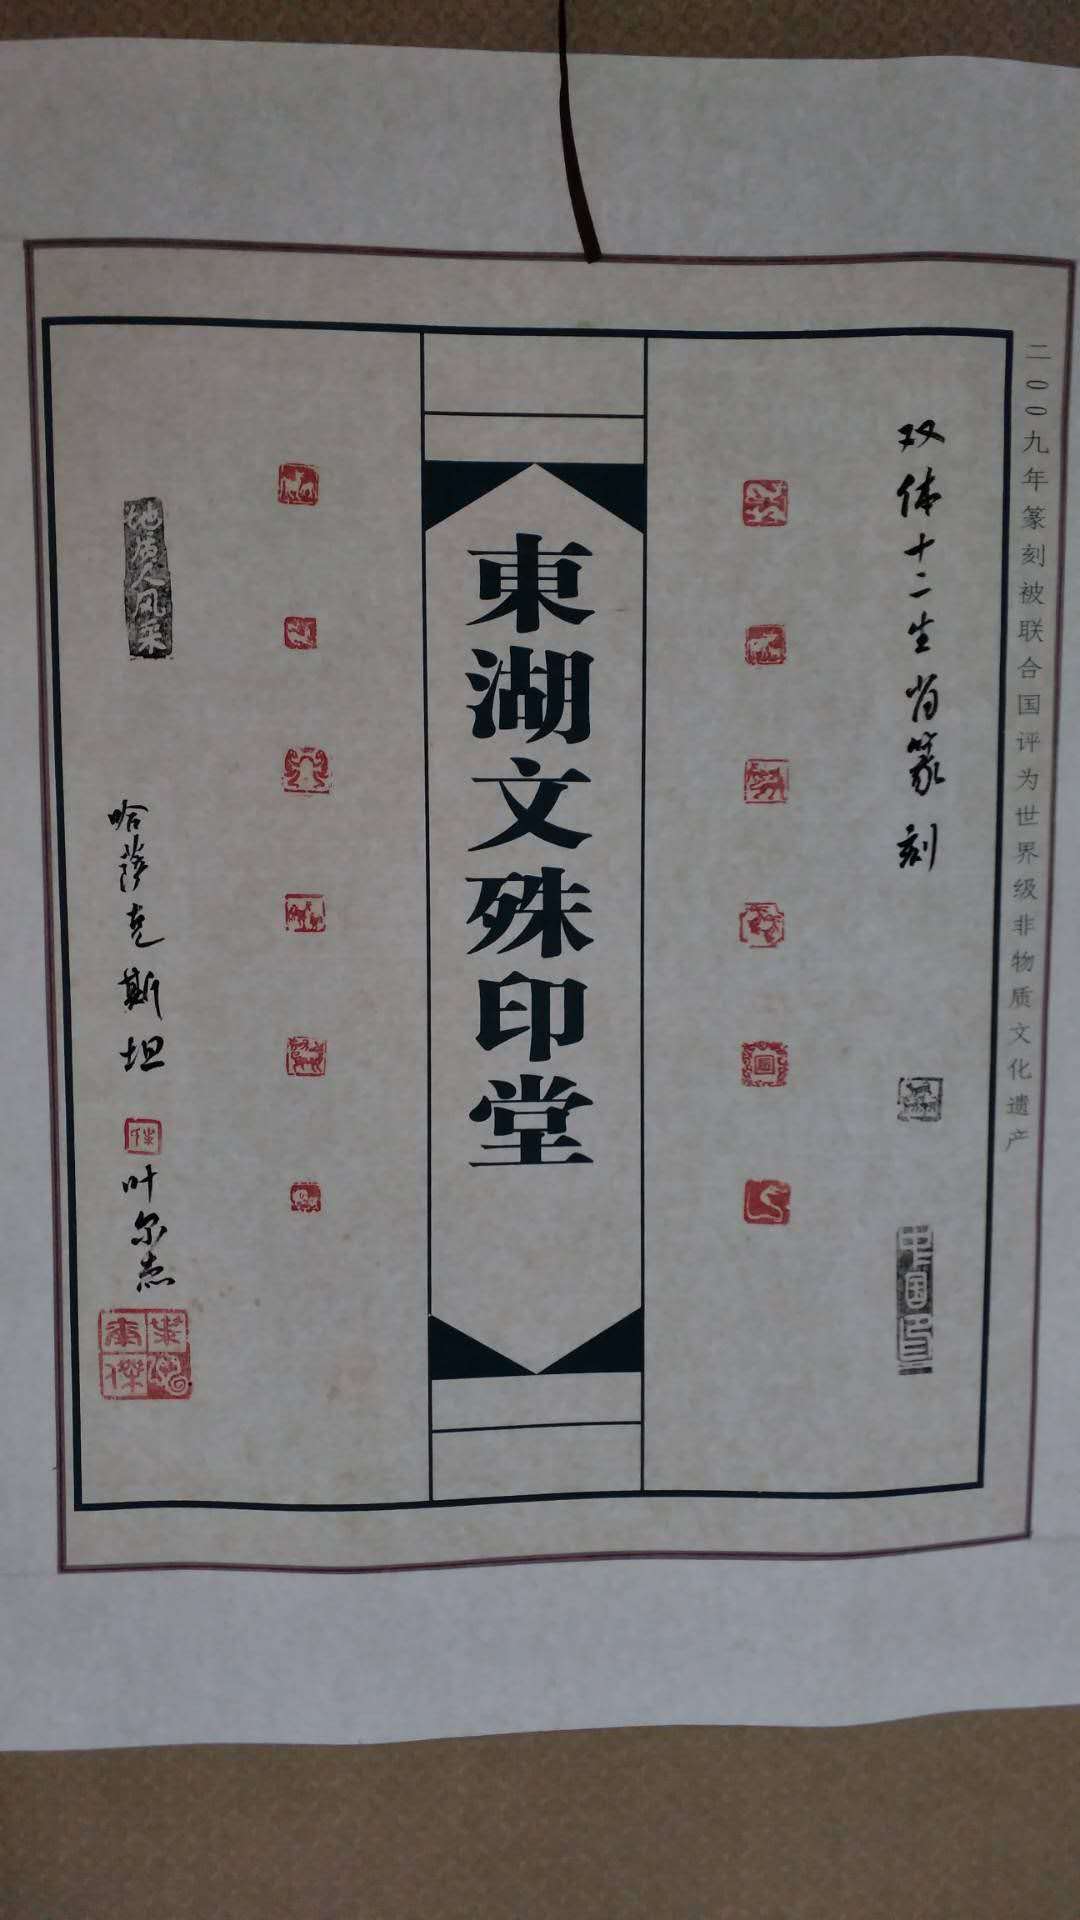 二〇〇九年篆刻被联合国评为世界级非物质文化遗产
双体十二生肖篆刻
中国印
東湖文殊印堂
地质人风采
哈萨克斯坦
叶尔杰